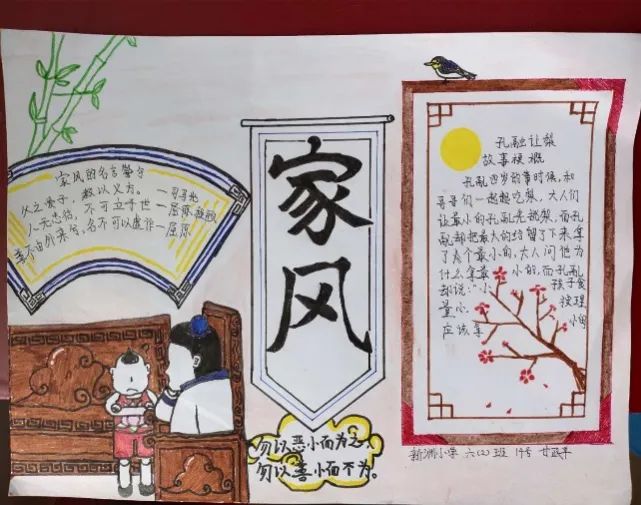 家风的名言警句
父之爱子,教以义方。
人无忠信,不可立于世
善不由外来兮,名不可以虚作一屈原
家风
勿以恶小而为之,
勿以善小而不为。
孔融让梨
故事梗概
孔融四岁的时候,和
哥哥们一起吃梨,大人们
让最小的孔融先挑梨,而孔
融却把最大的给留了下来拿
了个最小的,大人问他为
什么拿最小的,而孔融
却说:"小孩子食
量小
应该拿小的
新洲小学 六(2)班 19号